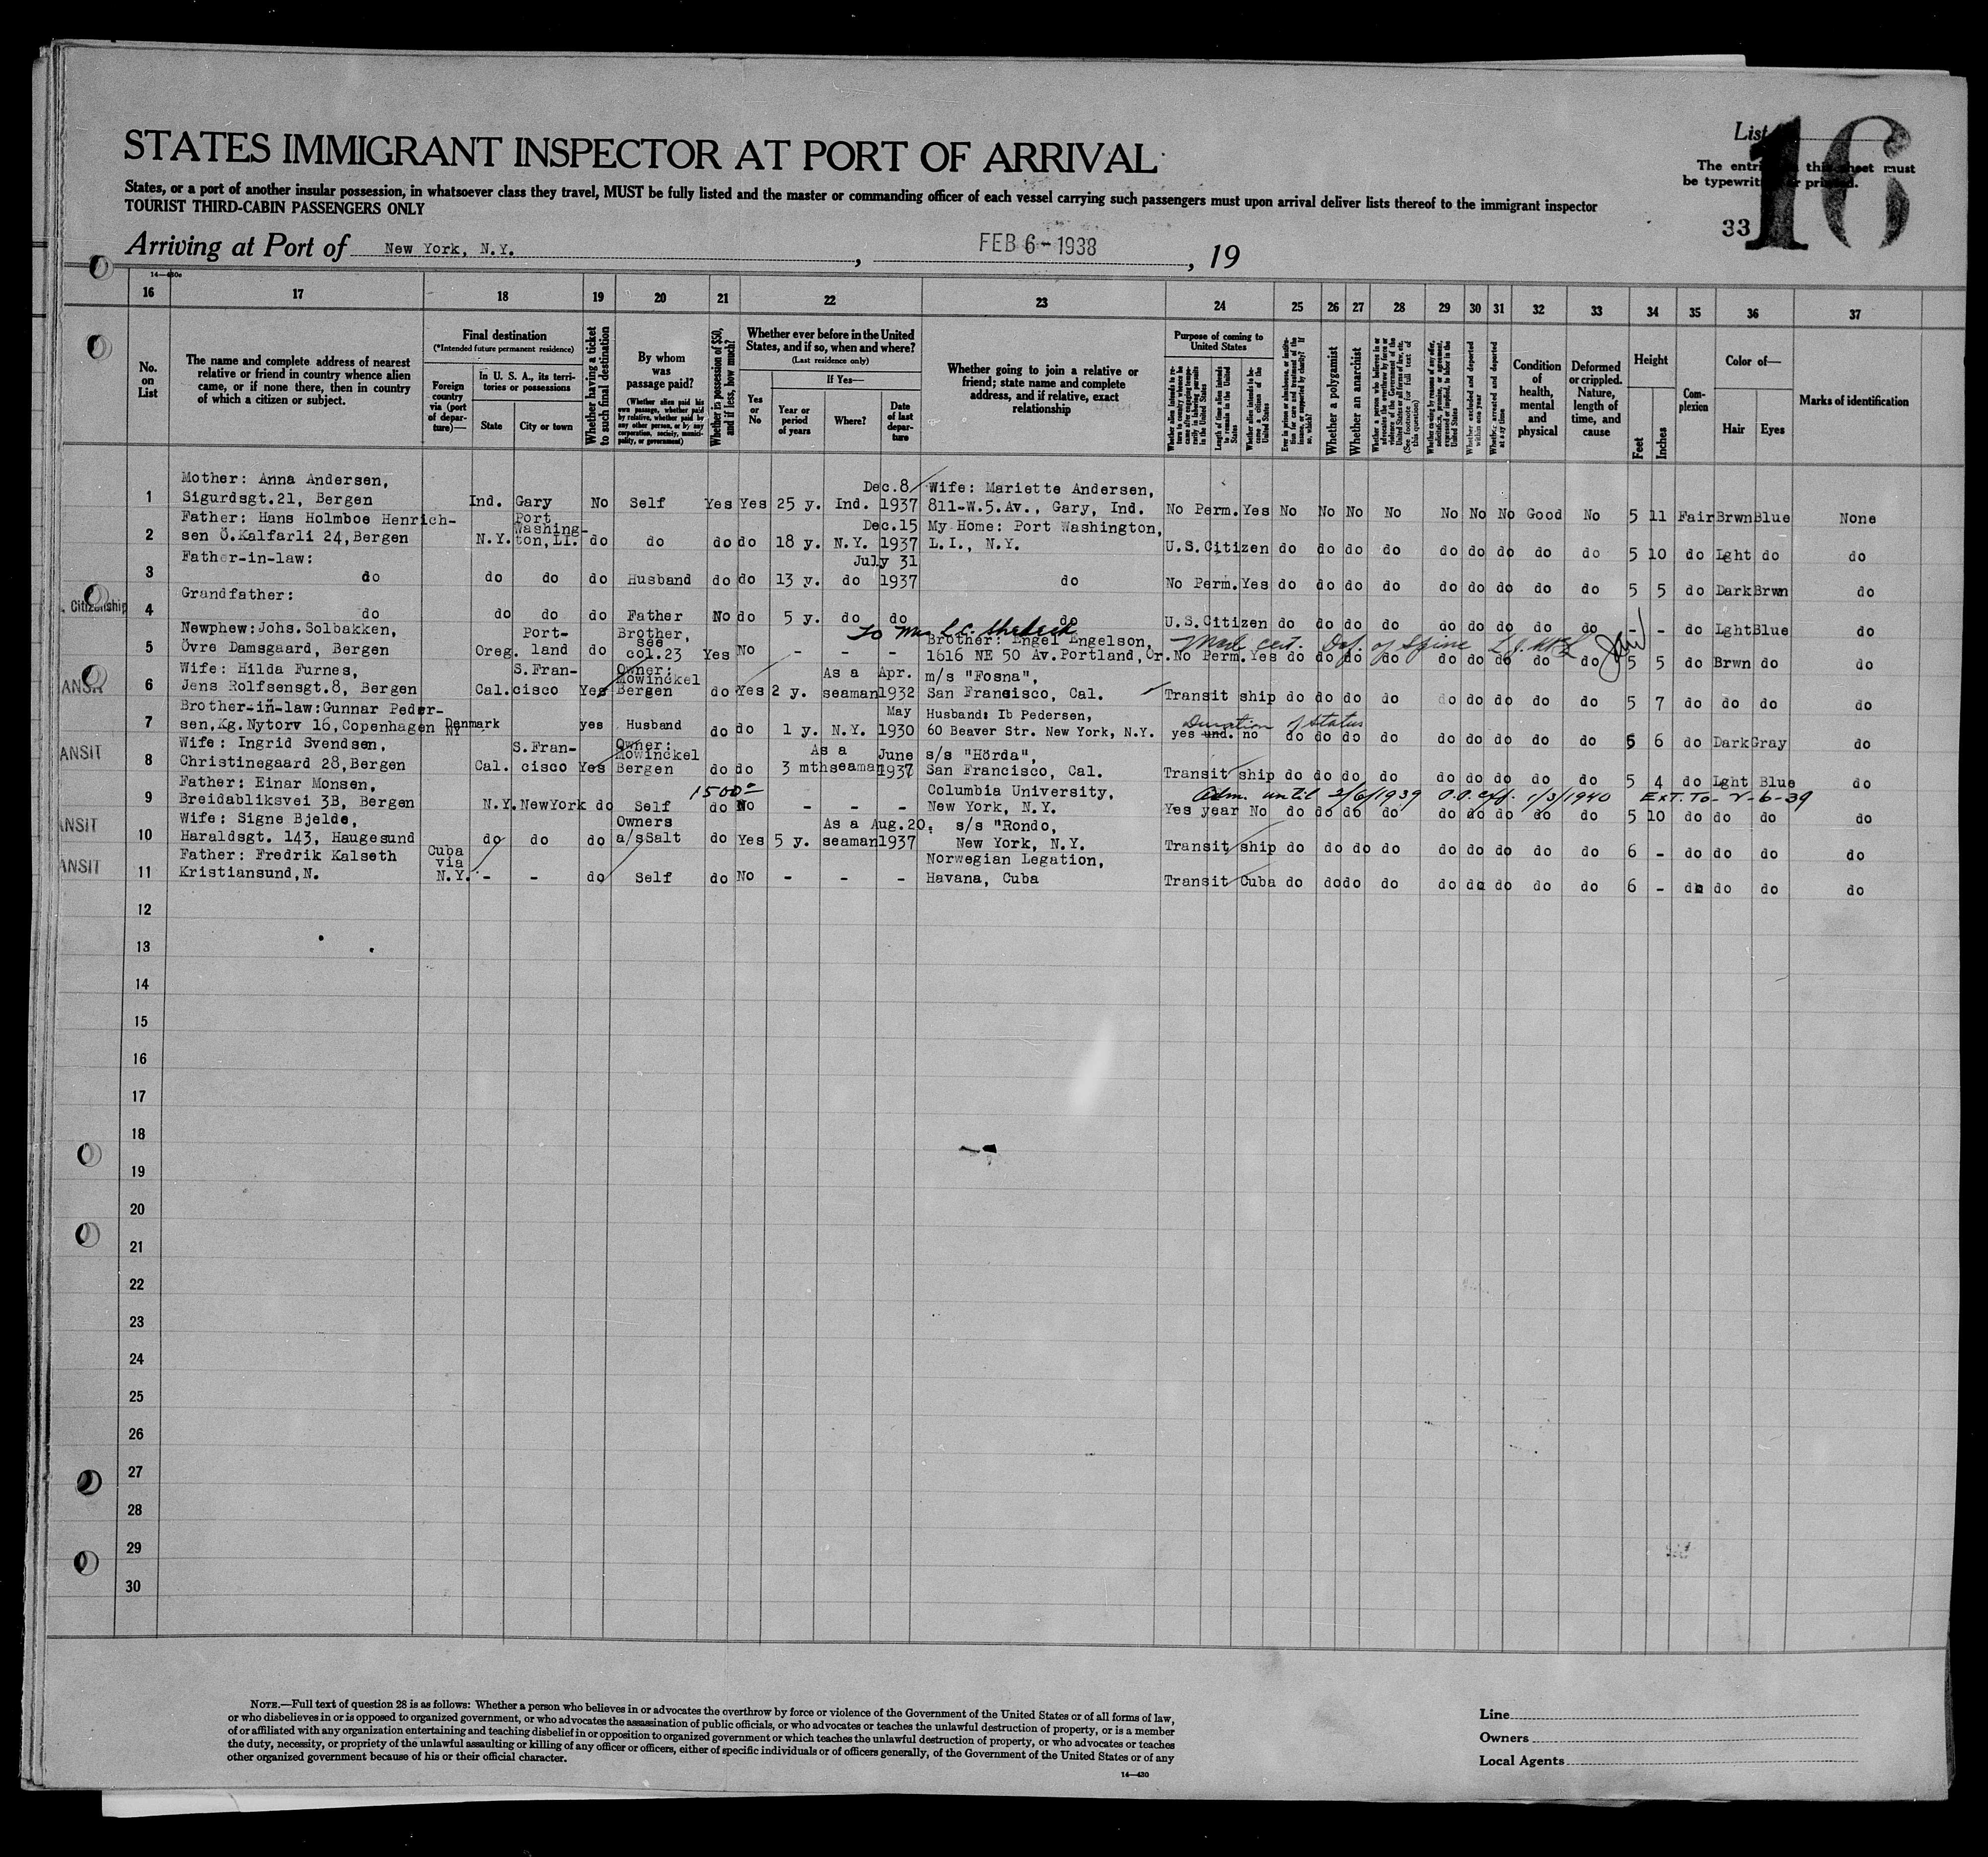 List
16
The entri this sheet must
be typewritt r printed.
33
STATES IMMIGRANT INSPECTOR AT PORT OF ARRIVAL
States, or a port of another insular possession, in whatsoever class they travel, MUST be fully listed and the master or commanding officer of each vessel carrying such passengers must upon arrival deliver lists thereof to the immigrant inspector
TOURIST THIRD-CABIN PASSENGERS ONLY
Arriving at Port of New York, N.Y. , FEB 6-1938 , 19
16 17 18 19 20 21 22 23 24 25 26 27 28 29 30 31 32 33 34 35 36 37
No. on List
The name and complete address of nearest relative or friend in country whence alien came, or if none there, then in country of which a citizen or subject.
Final destination
(*Intended future permanent residence)
Foreign country via (port of departure)—
In U. S. A., its territories or possessions
State
City or town
Whether having a ticket to such final destination
By whom was passage paid?
(Whether alien paid his own passage, whether paid by relative, whether paid by any other person, or by any corporation, society, municipality, or government)
Whether in possession of $50, and if less, how much?
Whether ever before in the United States, and if so, when and where?
(Last residence only)
Yes or No
If Yes—
Year or period of years
Where?
Date of last departure
Whether going to join a relative or friend; state name and complete address, and if relative, exact relationship
Purpose of coming to United States
Length of time alien intends to remain in the United States
Whether alien intends to become a citizen of the United States
Whether a polygamist
Whether an anarchist
Whether excluded and deported within one year
Whether arrested and deported at any time
Condition of health, mental and physical
Deformed or crippled. Nature, length of time, and cause
Height
Feet
Inches
Complexion
Color of—
Hair
Eyes
Marks of identification
Mother: Anna Andersen, Dec.8 Wife: Mariette Andersen,
1 Sigurdsgt.21, Bergen Ind. Gary No Self Yes Yes 25 y. Ind. 1937 811-W.5.Av., Gary, Ind. No Perm. Yes No No No No No No No Good No 5 11 Fair Brwn Blue None
Father: Hans Holmboe Henrich- Port Washing- Dec.15 My Home: Port Washington,
2 sen Ö.Kalfarli 24,Bergen N.Y. ton,LI. do do do do 18 y. N.Y. 1937 L.I., N.Y. U.S.Citizen do do do do do do do do do 5 10 do Lght do do
Father-in-law: July 31
3 do do do do Husband do do 13 y. do 1937 do No Perm. Yes do do do do do do do do do 5 5 do Dark Brwn do
Grandfather:
. Citizenship 4 do do do do Father No do 5 y. do do do U.S.Citizen do do do do do do do do do - - do Lght Blue do
Newphew:Johs.Solbakken, Port- Brother, see Brother: Engel Engelson,
5 Övre Damsgaard, Bergen Oreg. land do col.23 Yes No - - - 1616 NE 50 Av.Portland,Or. No Perm. Yes do do do do do do do do do 5 5 do Brwn do do
Med. cert. Def. of Spine
Wife: Hilda Furnes, S.Fran- Owner: Mowinckel As a Apr. m/s "Fosna",
ANSIT 6 Jens Rolfsensgt.8, Bergen Cal. cisco Yes Bergen do Yes 2 y. seaman 1932 San Francisco, Cal. Transit ship do do do do do do do do do 5 7 do do do do
Brother-in-law:Gunnar Peder- May Husband: Ib Pedersen,
Duration of Status
7 sen,Kg.Nytorv 16,Copenhagen Denmark NY yes Husband do do 1 y. N.Y. 1930 60 Beaver Str. New York, N.Y. yes und. no do do do do do do do do do 5 6 do Dark Gray do
Wife: Ingrid Svendsen, S.Fran- Owner: Mowinckel As a June s/s "Hörda",
ANSIT 8 Christinegaard 28,Bergen Cal. cisco Yes Bergen do do 3 mth seaman 1937 San Francisco, Cal. Transit ship do do do do do do do do do 5 4 do Lght Blue do
Father: Einar Monsen, 1500 Columbia University, Adm. until 2/6/1939 1/3/1940 EXT. TO- 2-6-39
9 Breidabliksvei 3B, Bergen N.Y. NewYork do Self do No - - - New York, N.Y. Yes year No do do do do do do do do do 5 10 do do do do
Wife: Signe Bjelde, Owners As a Aug.20, s/s "Rondo,
ANSIT 10 Haraldsgt. 143, Haugesund do do do a/s Salt do Yes 5 y. seaman 1937 New York, N.Y. Transit ship do do do do do do do do do 6 - do do do do
Father: Fredrik Kalseth Cuba via Norwegian Legation,
ANSIT 11 Kristiansund,N. N.Y. - - do Self do No - - - Havana, Cuba Transit Cuba do do do do do do do do do 6 - do do do do
12
13
14
15
16
17
18
19
20
21
22
23
24
25
26
27
28
29
30
NOTE.—Full text of question 28 is as follows: Whether a person who believes in or advocates the overthrow by force or violence of the Government of the United States or of all forms of law,
or who disbelieves in or is opposed to organized government, or who advocates the assassination of public officials, or who advocates or teaches the unlawful destruction of property, or is a member
of or affiliated with any organization entertaining and teaching disbelief in or opposition to organized government or which teaches the unlawful destruction of property, or who advocates or teaches
the duty, necessity, or propriety of the unlawful assaulting or killing of any officer or officers, either of specific individuals or of officers generally, of the Government of the United States or of any
other organized government because of his or their official character.
14—430
Line
Owners
Local Agents